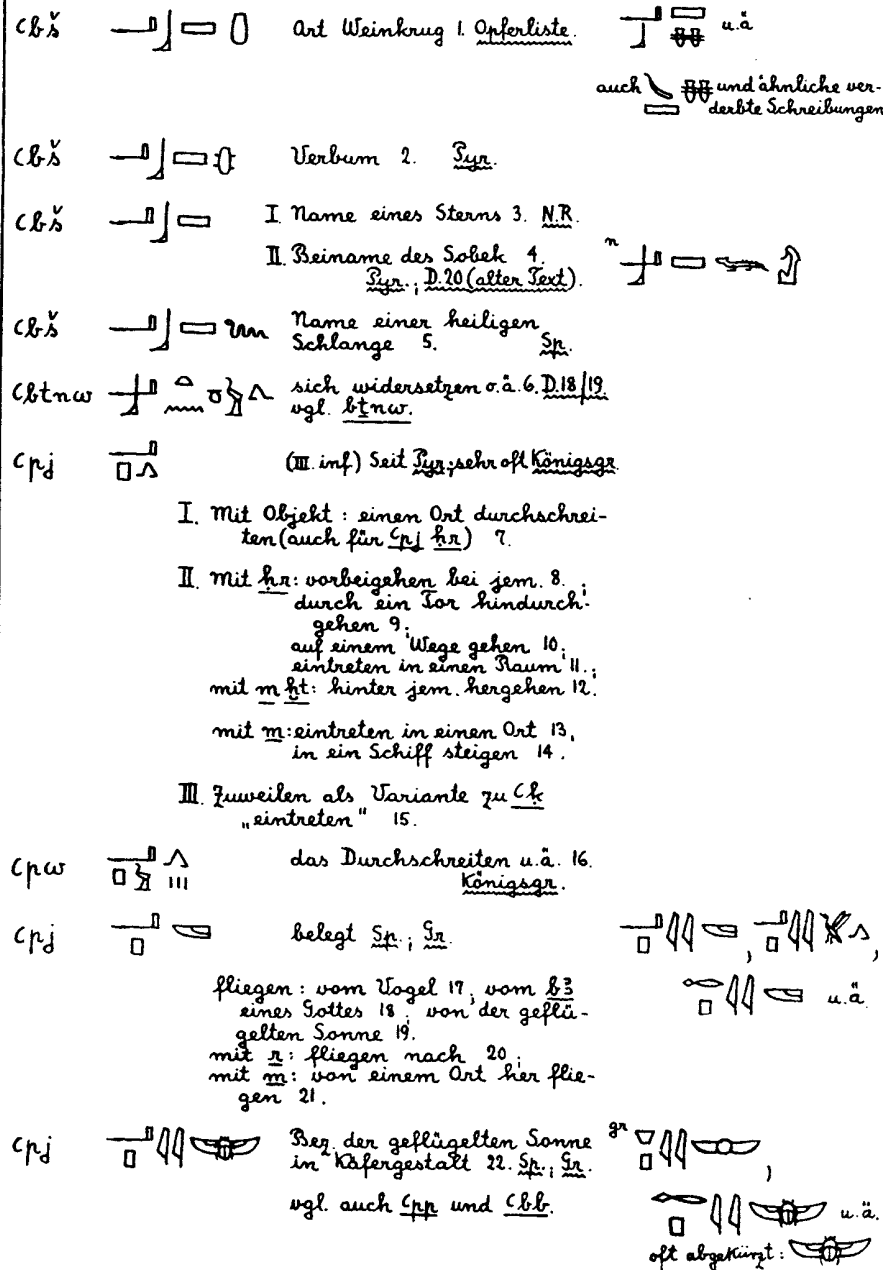 ꜥbš Art Weinkrug 1. Opferliste. u.ä
auch und ähnliche ver-
derbte Schreibungen
ꜥbš Verbum 2. Pyr.
ꜥbš I. Name eines Sterns 3. N.R.
II. Beiname des Sobek 4.
Pyr.; D.20 (alter Text).
ꜥbš Name einer heiligen
Schlange 5. Sp.
ꜥbtnw sich widersetzen o.ä. 6. D.18/19.
vgl. bṯnw.
ꜥpj (III. inf.) Seit Pyr; sehr oft Königsgr.
I. Mit Objekt: einen Ort durchschrei-
ten (auch für ꜥpj ḥr) 7.
II. Mit ḥr: vorbeigehen bei jem. 8.;
durch ein Tor hindurch-
gehen 9;
auf einem Wege gehen 10;
eintreten in einen Raum 11.;
mit m ḫt: hinter jem. hergehen 12.
mit m: eintreten in einen Ort 13,
in ein Schiff steigen 14.
III. Zuweilen als Variante zu ꜥḳ
„eintreten" 15.
ꜥpw das Durchschreiten u.ä. 16.
Königsgr.
ꜥpj belegt Sp.; Gr.
fliegen: vom Vogel 17, vom bꜣ
eines Gottes 18, von der geflü-
gelten Sonne 19.
mit r: fliegen nach 20;
mit m: von einem Ort her flie-
gen 21.
u.ä.
ꜥpj Bez. der geflügelten Sonne
in Käfergestalt 22. Sp.; Gr. gr
vgl. auch ꜥpp und ꜥbb. u.ä.
oft abgekürzt: